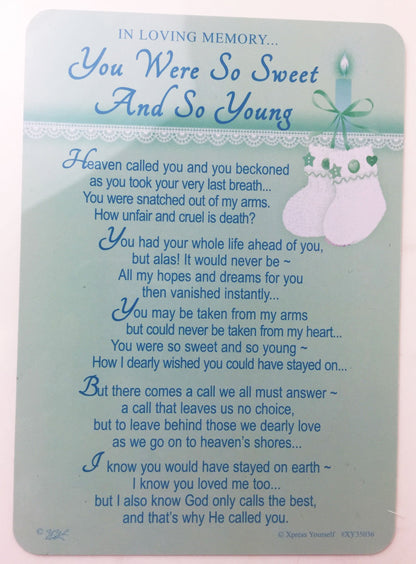 IN LOVING MEMORY...
You Were So Sweet
And So Young
Heaven called you and you beckoned
as you took your very last breath...
You were snatched out of my arms.
How unfair and cruel is death?
You had your whole life ahead of you,
but alas! It would never be ~
All my hopes and dreams for you
then vanished instantly...
You may be taken from my arms
but could never be taken from my heart...
You were so sweet and so young ~
How I dearly wished you could have stayed on...
But there comes a call we all must answer ~
a call that leaves us no choice,
but to leave behind those we dearly love
as we go on to heaven's shores...
I know you would have stayed on earth ~
I know you loved me too...
but I also know God only calls the best,
and that's why He called you.
© Xpress Yourself #XY35036